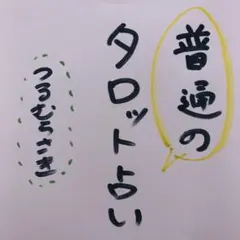 普通の
タロット占い
つるむらさき